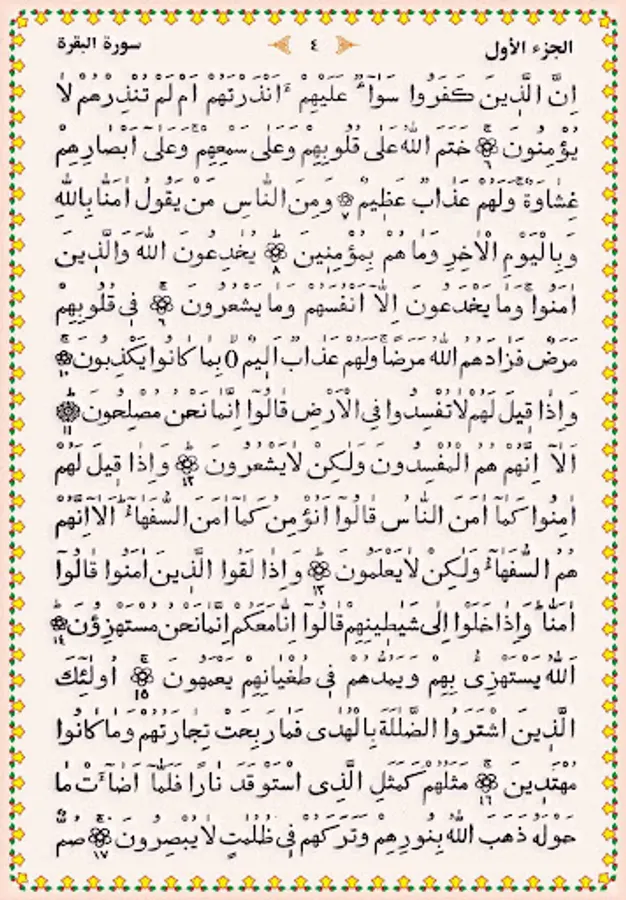 الجزء الأول ٤ سورة البقرة
اِنَّ الَّذٖينَ كَفَرُوا سَوَٓاءٌ عَلَيْهِمْ ءَاَنْذَرْتَهُمْ اَمْ لَمْ تُنْذِرْهُمْ لَا
يُؤْمِنُونَ ٦ خَتَمَ اللّٰهُ عَلٰى قُلُوبِهِمْ وَعَلٰى سَمْعِهِمْۚ وَعَلٰٓى اَبْصَارِهِمْ
غِشَاوَةٌۚ وَلَهُمْ عَذَابٌ عَظٖيمٌ ٧ وَمِنَ النَّاسِ مَنْ يَقُولُ اٰمَنَّا بِاللّٰهِ
وَبِالْيَوْمِ الْاٰخِرِ وَمَا هُمْ بِمُؤْمِنٖينَۘ ٨ يُخَادِعُونَ اللّٰهَ وَالَّذٖينَ
اٰمَنُواۚ وَمَا يَخْدَعُونَ اِلَّٓا اَنْفُسَهُمْ وَمَا يَشْعُرُونَۜ ٩ فٖى قُلُوبِهِمْ
مَرَضٌ فَزَادَهُمُ اللّٰهُ مَرَضًاۚ وَلَهُمْ عَذَابٌ اَلٖيمٌ بِمَا كَانُوا يَكْذِبُونَ ١٠
وَاِذَا قٖيلَ لَهُمْ لَا تُفْسِدُوا فِى الْاَرْضِ قَالُٓوا اِنَّمَا نَحْنُ مُصْلِحُونَ ١١
اَلَٓا اِنَّهُمْ هُمُ الْمُفْسِدُونَ وَلٰكِنْ لَا يَشْعُرُونَ ١٢ وَاِذَا قٖيلَ لَهُمْ
اٰمِنُوا كَمَٓا اٰمَنَ النَّاسُ قَالُٓوا اَنُؤْمِنُ كَمَٓا اٰمَنَ السُّفَهَٓاءُۜ اَلَٓا اِنَّهُمْ
هُمُ السُّفَهَٓاءُ وَلٰكِنْ لَا يَعْلَمُونَ ١٣ وَاِذَا لَقُوا الَّذٖينَ اٰمَنُوا قَالُٓوا
اٰمَنَّاۚ وَاِذَا خَلَوْا اِلٰى شَيَاطٖينِهِمْ قَالُٓوا اِنَّا مَعَكُمْ اِنَّمَا نَحْنُ مُسْتَهْزِؤُنَ ١٤
اَللّٰهُ يَسْتَهْزِئُ بِهِمْ وَيَمُدُّهُمْ فٖى طُغْيَانِهِمْ يَعْمَهُونَ ١٥ اُولٰٓئِكَ
الَّذٖينَ اشْتَرَوُا الضَّلٰلَةَ بِالْهُدٰى فَمَا رَبِحَتْ تِجَارَتُهُمْ وَمَا كَانُوا
مُهْتَدٖينَ ١٦ مَثَلُهُمْ كَمَثَلِ الَّذِى اسْتَوْقَدَ نَارًا فَلَمَّٓا اَضَٓاءَتْ مَا
حَوْلَهُ ذَهَبَ اللّٰهُ بِنُورِهِمْ وَتَرَكَهُمْ فٖى ظُلُمَاتٍ لَا يُبْصِرُونَ ١٧ صُمٌّ